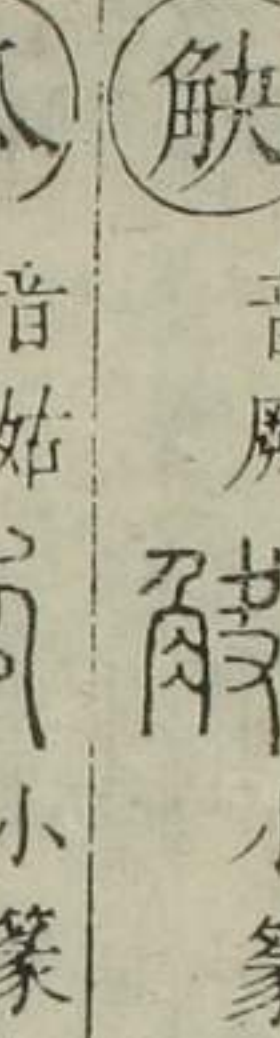 觖音厥小篆
音姑小篆